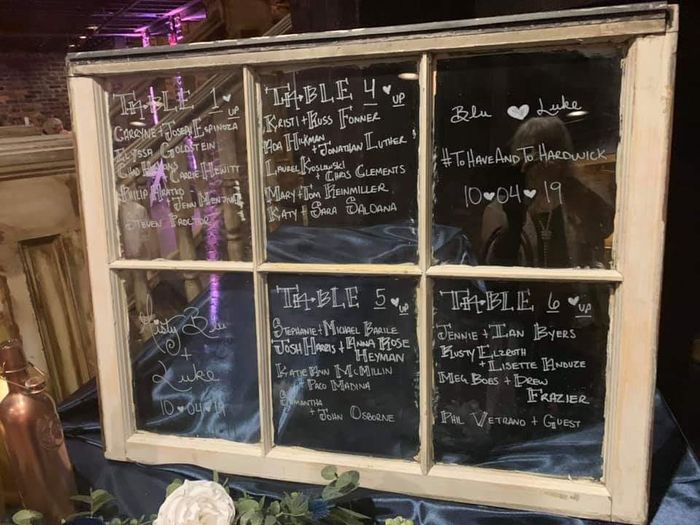 TABLE 1 UP
CARRYNE + JOSEPH ESPINOZA
ELYSSA GOLDSTEIN
CARRIE HEWITT
PHILIP
+ JENN
+ STEVEN PROCTOR
TABLE 4 UP
KRISTI + RUSS FONNER
ADA HICKMAN
+ JONATHAN LUTHER
LAUREL KOSLOWSKI
+ CHRIS CLEMENTS
MARY + TOM REINMILLER
KATY + SARA SALDANA
Blu ♥ Luke
#TOHAVEANDTOHARDWICK
10♥04♥19
Blu
+
Luke
10♥04♥19
TABLE 5 UP
STEPHANIE + MICHAEL BARILE
JOSH HARRIS + ANNA ROSE
HEYMAN
KATIE ANN MCMILLIN
+ PACO MADINA
SAMANTHA
+ JOHN OSBORNE
TABLE 6 UP
JENNIE + IAN BYERS
RUSTY ELZROTH
+ LISETTE ANDUZE
MEG BOES + DREW
FRAZIER
PHIL VETRANO + GUEST